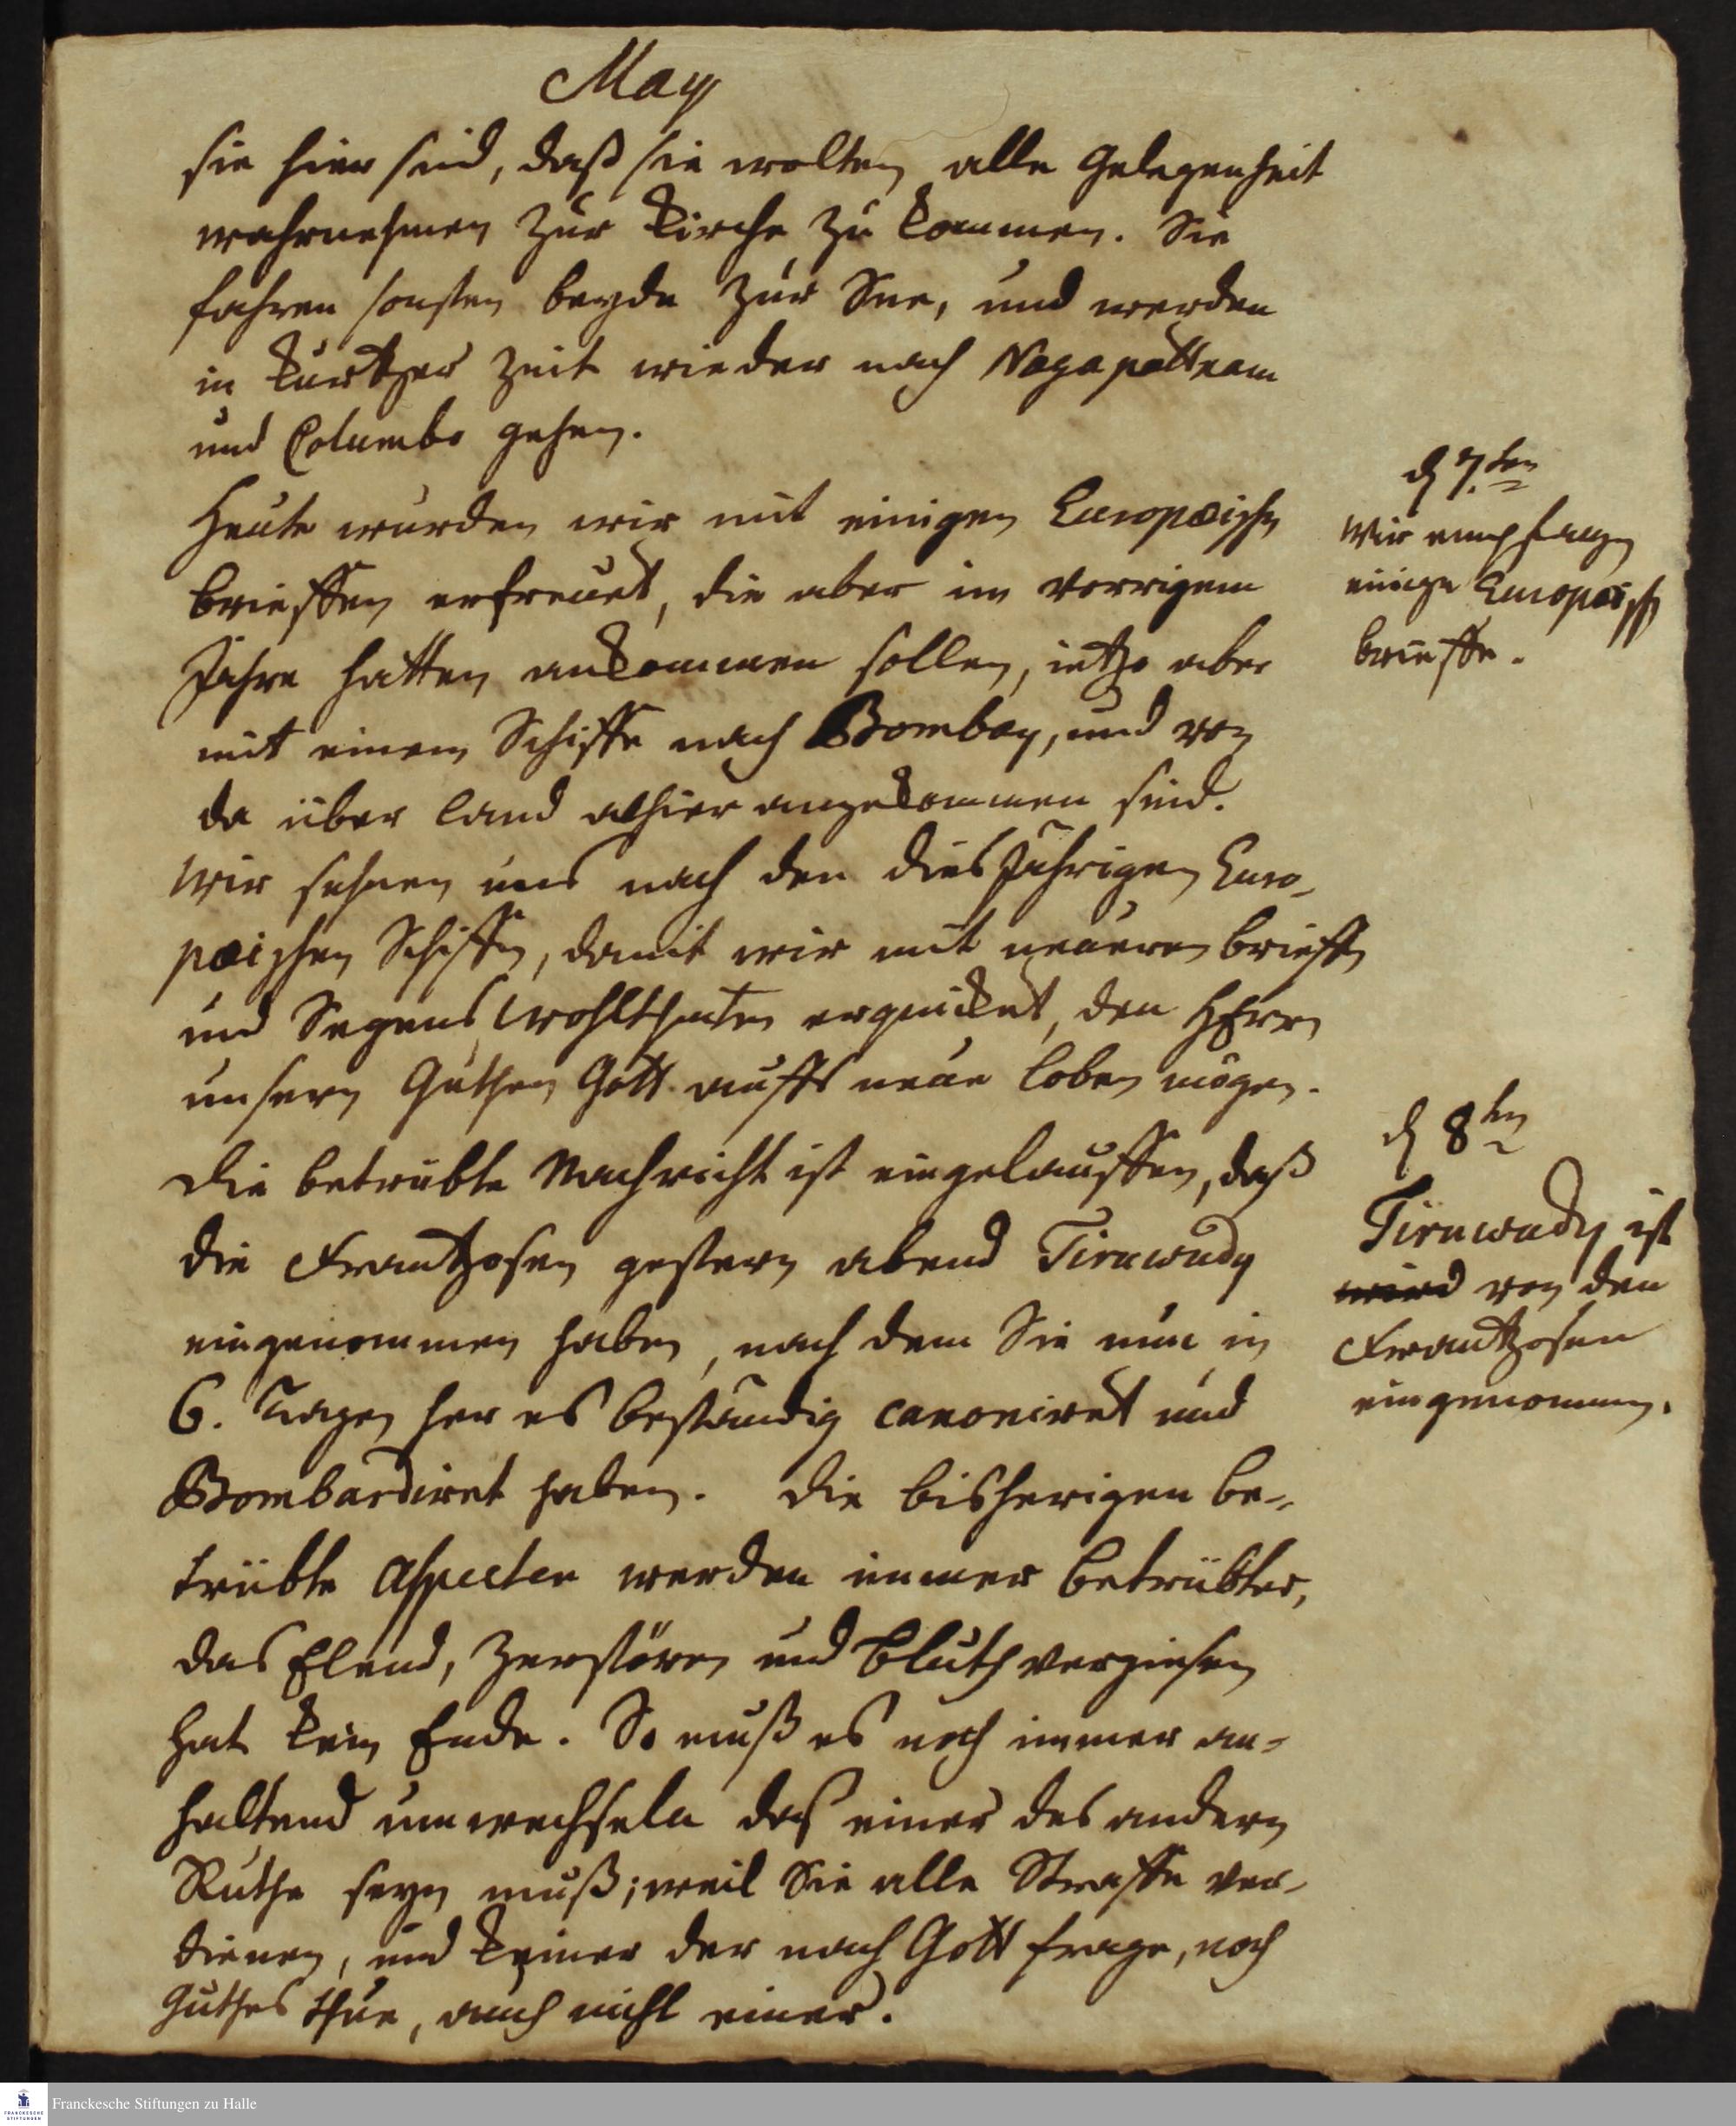 May
sie hier sind, daß sie wolten alle Gelegenheit
wahrnehmen zur Kirche zu kommen. Sie
fahren sonsten beyde zur See, und werden
in kurtzer Zeit wieder nach Nagapattnam
und Columbo gehen.
Heute wurden wir mit einigen Europæischen
brieffen erfreuet, die aber im vorrigem
Jahre hatten ankommen sollen, ietzo aber
mit einem Schiffe nach Bombay, und von
da über land alhier angekommen sind.
Wir sehnen uns nach den dies Jährigen Euro-
pæischen Schiffen, damit wir mit neuern brieffen
und Segens Wohlthaten erquicket, den HErrn
unsern Guthen Gott auffs neue loben mögen.
die betrübte Nachricht ist eingelauffen, daß
die Frantzosen gestern abend Tiruwudy
eingenommen haben, nach dem Sie nun in
6. Tagen her es beständig canoniret und
Bombardiret haben. die bisherigen be-
trübte Aspecten werden immer betrübter,
das Elend, zerstören und Bluth vergiesen
hat kein Ende. So muß es noch immer an-
haltend umwechseln daß einer des andern
Ruthe seyn muß; weil Sie alle Straffe ver-
dienen, und keiner der nach Gott frage, noch
Guthes thue, auch nicht einer.
d 7. ten
Wir empfangen
einige Europæische
brieffe.
d 8 ten
Tiruwudy ist
wird von den
Frantzosen
eingenommen.
Franckesche Stiftungen zu Halle
FRANCKESCHE
STIFTUNGEN